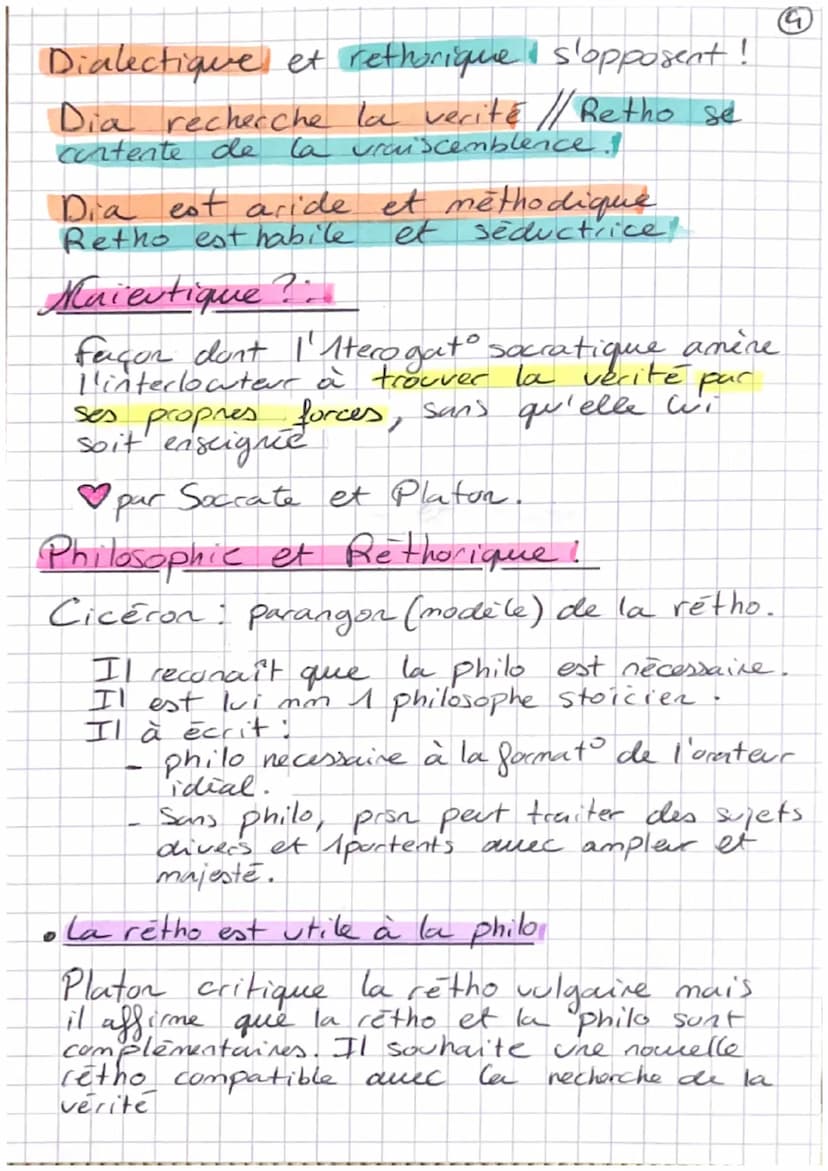 4
Dialectique et rethorique s'opposent !
Dia recherche la verité // Retho se
contente de la vraiscemblence.
Dia est aride et méthodique
Retho est habile et séductrice
Maïeutique ? :
façon dont l'1terogat° socratique amène
l'interlocuteur à trouver la vérité par
ses propres forces, sans qu'elle lui
soit enseignée
♥ par Socrate et Platon.
Philosophie et Réthorique :
Cicéron : parangon (modèle) de la rétho.
Il reconaît que la philo est nécessaire.
Il est lui mm 1 philosophe stoïcien.
Il à écrit :
- philo necessaire à la format° de l'orateur
idéal.
- Sans philo, prsn peut traiter des sujets
divers et 1portents avec ampleur et
majesté.
• La rétho est utile à la philo
Platon critique la rétho vulgaire mais
il affirme que la rétho et la philo sont
complémentaires. Il souhaite une nouvelle
rétho compatible avec la recherche de la
vérité